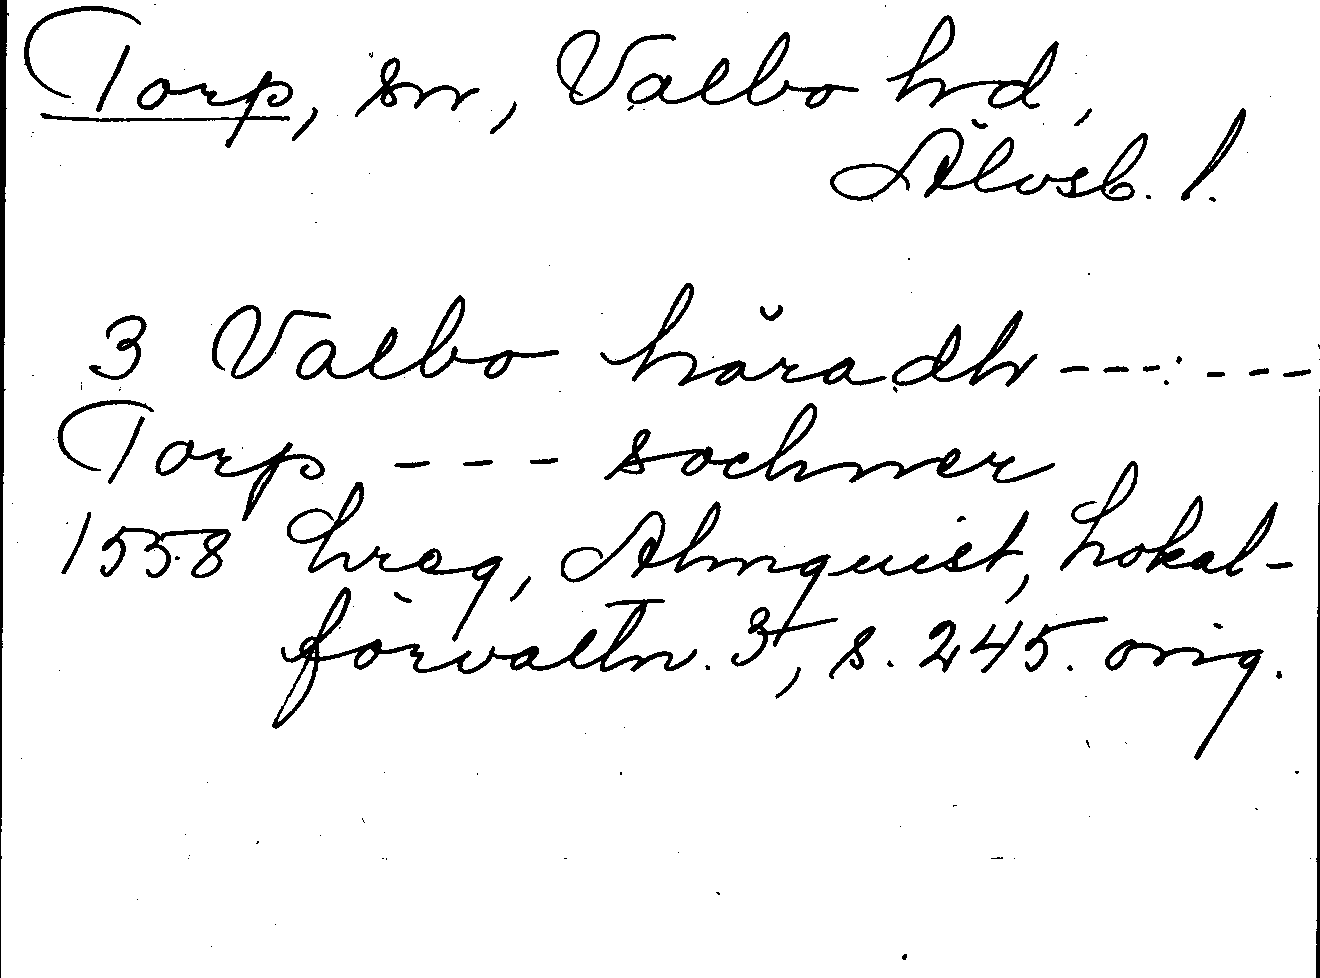 Torp, sn, Valbo hd,
Älvsb. l.
3 Valbo häradh --- ---
Torp --- sochner
1558 hreg, Almquist, Lokal-
förvaltn. 3, s. 245. orig.